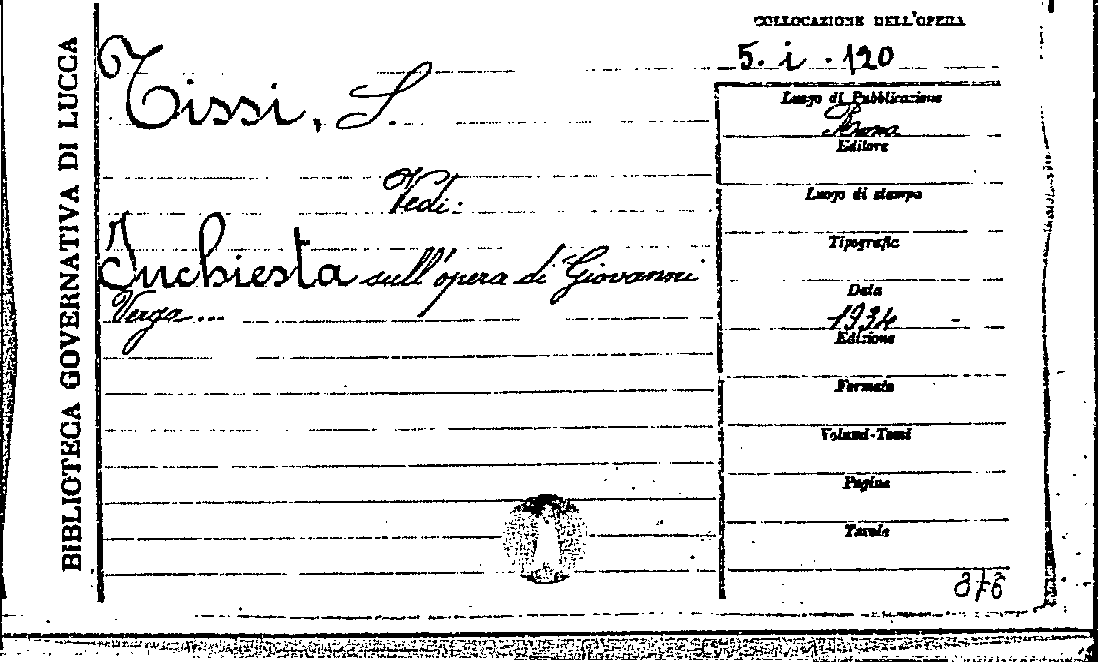 BIBLIOTECA GOVERNATIVA DI LUCCA
COLLOCAZIONE DELL'OPERA
5. i. 120
Tissi, S.
Vedi:
Inchiesta sull'opera di Giovanni
Verga...
Luogo di Pubblicazione
Roma
Editore
Luogo di stampa
Tipografia
Data
1934
Edizione
Formato
Volumi-Tomi
Pagine
Tavole
876